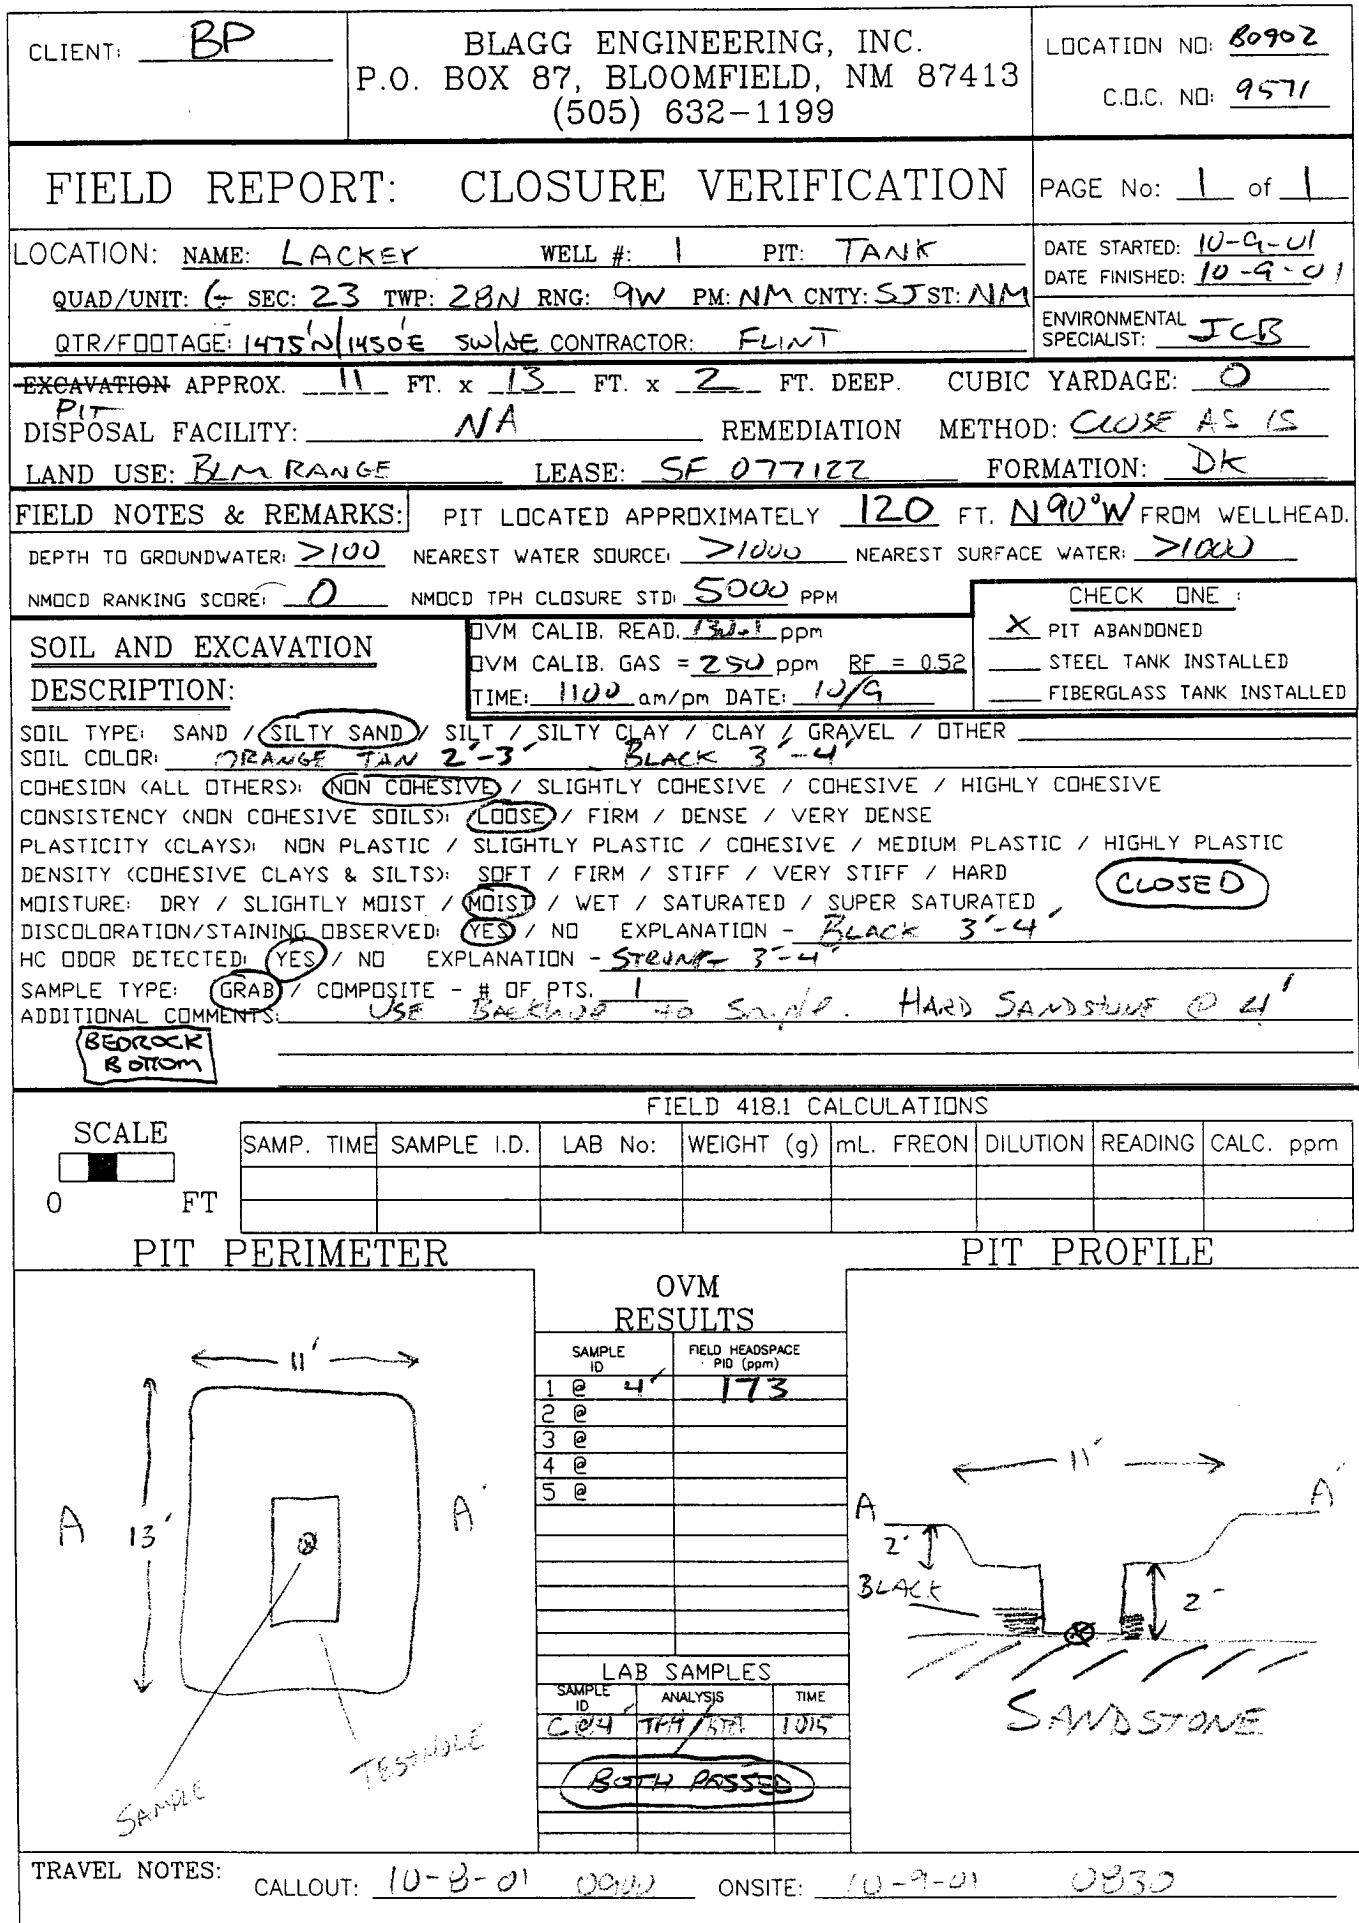 CLIENT: BP
BLAGG ENGINEERING, INC.
P.O. BOX 87, BLOOMFIELD, NM 87413
(505) 632-1199
LOCATION NO: B0902
C.O.C. NO: 9571
FIELD REPORT: CLOSURE VERIFICATION
PAGE No: 1 of 1
LOCATION: NAME: LACKEY WELL #: 1 PIT: TANK
QUAD/UNIT: G SEC: 23 TWP: 28N RNG: 9W PM: NM CNTY: SJ ST: NM
QTR/FOOTAGE: 1475'N/1450'E SW/NE CONTRACTOR: FLINT
DATE STARTED: 10-9-01
DATE FINISHED: 10-9-01
ENVIRONMENTAL
SPECIALIST: JCB
EXCAVATION APPROX. 11 FT. x 13 FT. x 2 FT. DEEP. CUBIC YARDAGE: 0
PIT
DISPOSAL FACILITY: NA REMEDIATION METHOD: CLOSE AS IS
LAND USE: BLM RANGE LEASE: SF 077122 FORMATION: DK
FIELD NOTES & REMARKS: PIT LOCATED APPROXIMATELY 120 FT. N90°W FROM WELLHEAD.
DEPTH TO GROUNDWATER: >100 NEAREST WATER SOURCE: >1000 NEAREST SURFACE WATER: >1000
NMOCD RANKING SCORE: 0 NMOCD TPH CLOSURE STD: 5000 PPM
CHECK ONE :
X PIT ABANDONED
STEEL TANK INSTALLED
FIBERGLASS TANK INSTALLED
SOIL AND EXCAVATION
DESCRIPTION:
OVM CALIB. READ. 130.1 ppm
OVM CALIB. GAS = 250 ppm RF = 0.52
TIME: 1100 am/pm DATE: 10/9
SOIL TYPE: SAND / SILTY SAND / SILT / SILTY CLAY / CLAY / GRAVEL / OTHER
SOIL COLOR: ORANGE TAN 2'-3' BLACK 3'-4'
COHESION (ALL OTHERS): NON COHESIVE / SLIGHTLY COHESIVE / COHESIVE / HIGHLY COHESIVE
CONSISTENCY (NON COHESIVE SOILS): LOOSE / FIRM / DENSE / VERY DENSE
PLASTICITY (CLAYS): NON PLASTIC / SLIGHTLY PLASTIC / COHESIVE / MEDIUM PLASTIC / HIGHLY PLASTIC
DENSITY (COHESIVE CLAYS & SILTS): SOFT / FIRM / STIFF / VERY STIFF / HARD
CLOSED
MOISTURE: DRY / SLIGHTLY MOIST / MOIST / WET / SATURATED / SUPER SATURATED
DISCOLORATION/STAINING OBSERVED: YES / NO EXPLANATION - BLACK 3'-4'
HC ODOR DETECTED: YES / NO EXPLANATION - STRONG 3'-4'
SAMPLE TYPE: GRAB / COMPOSITE - # OF PTS. 1
ADDITIONAL COMMENTS: USE BACKHOE to Sample. HARD SANDSTONE @ 4'
BEDROCK
BOTTOM
FIELD 418.1 CALCULATIONS
SCALE
0 FT
SAMP. TIME SAMPLE I.D. LAB No: WEIGHT (g) mL. FREON DILUTION READING CALC. ppm
PIT PERIMETER
PIT PROFILE
OVM
RESULTS
SAMPLE ID FIELD HEADSPACE PID (ppm)
1 @ 4' 173
2 @
3 @
4 @
5 @
11'
A 13' A'
TESTHOLE
SAMPLE
LAB SAMPLES
SAMPLE ID ANALYSIS TIME
C@4' TPH/BTEX 1015
BOTH PASSED
11'
A A'
2'
BLACK
2'
SANDSTONE
TRAVEL NOTES: CALLOUT: 10-8-01 0900 ONSITE: 10-9-01 0830